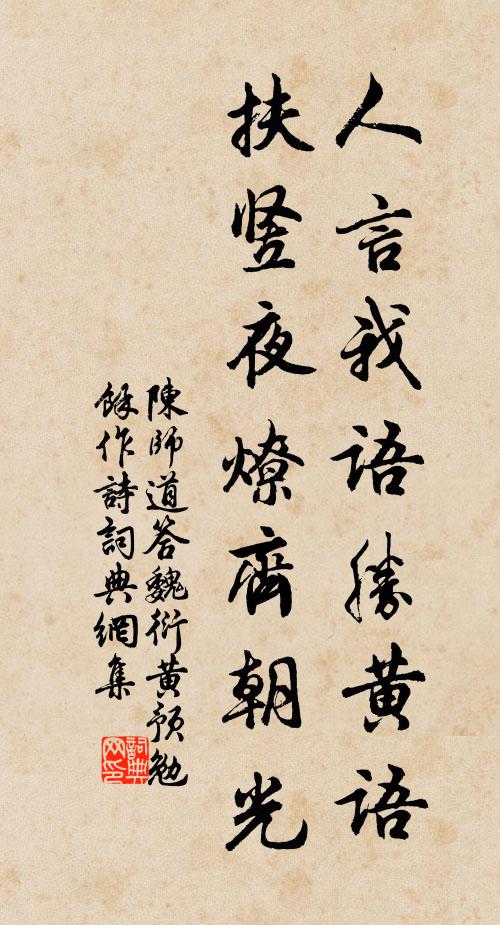 人言我語勝黄語
扶竖夜燎齊朝光
陳師道答魏衍黄預勉
餘作詩詞典網集
詞典网印